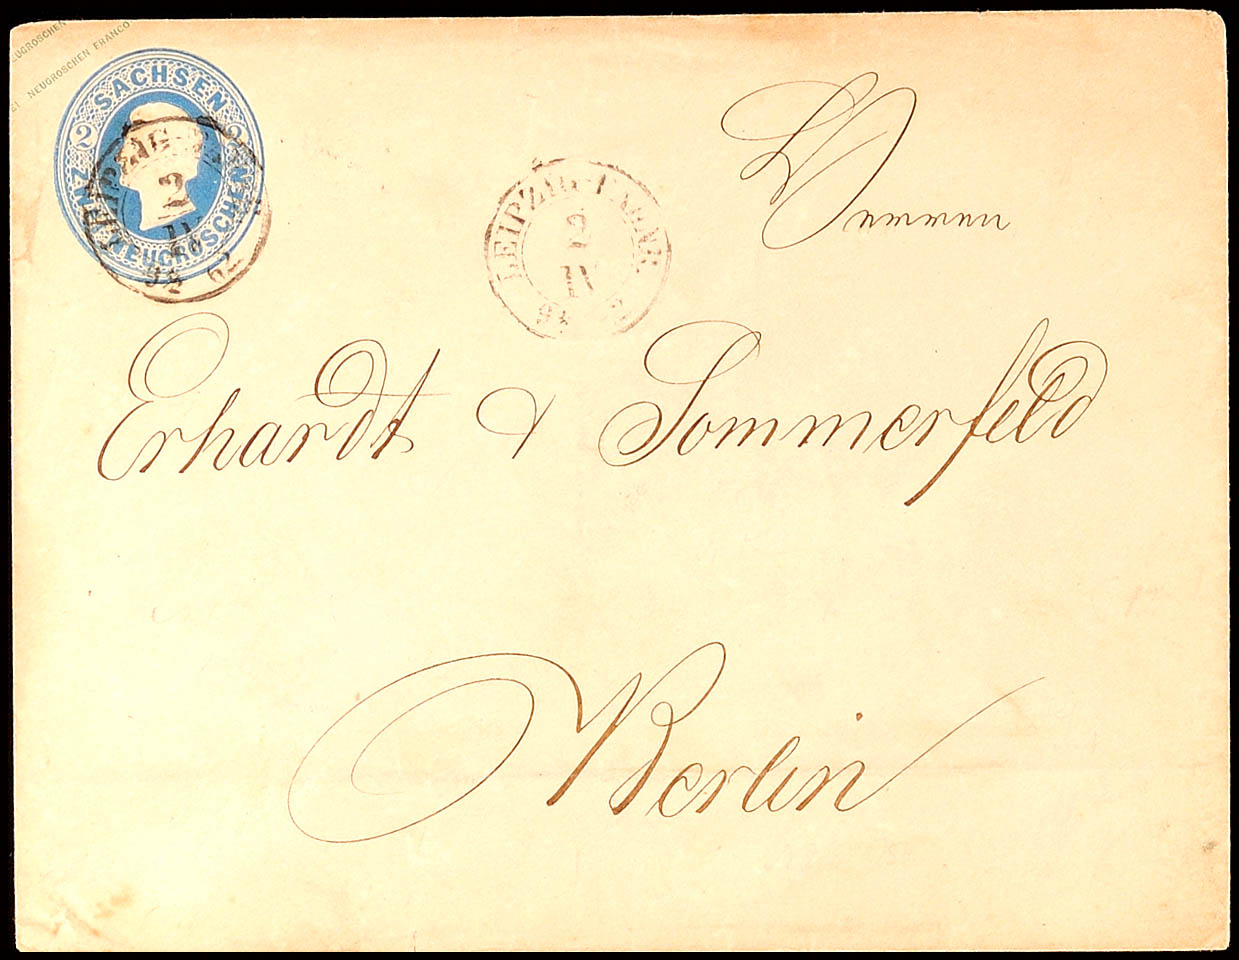 NEUGROSCHEN
NEUGROSCHEN FRANCO
SACHSEN
2 2
ZWEI NEUGROSCHEN
LEIPZIG
2
11
62
LEIPZIG
2
11
Herren
Erhardt & Sommerfeld
Berlin